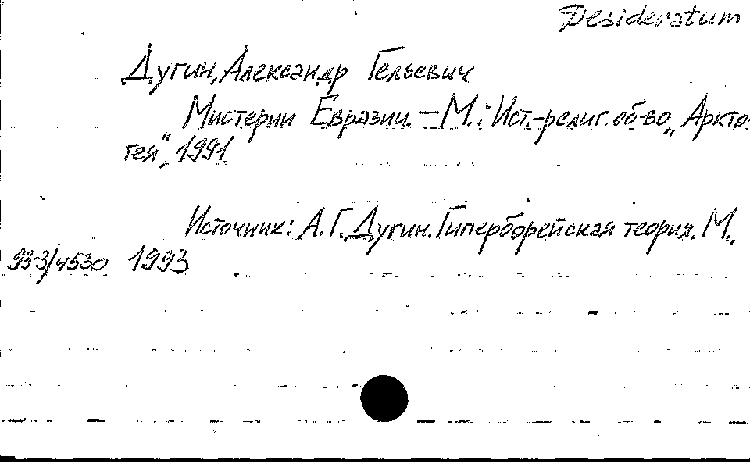 Desideratum
Дугин, Александр Гельевич
Мистерии Евразии. – М.: Ист.-религ. об-во „Аркто-
гея“, 1991
Источник: А.Г. Дугин. Гиперборейская теория. М.,
93-3/4530 1993